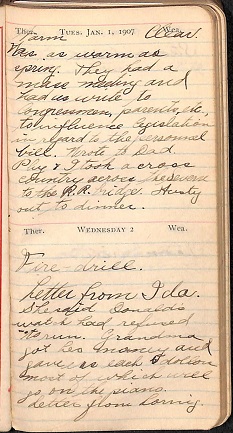 Ther. TUES. JAN. 1, 1907 Wea.
Warm Clear.
Was as warm as
spring. They had a
mass meeting and
had us write to
congressmen, parents, etc.
to influence legislation
in regard to the personnel
bill. Wrote to Dad.
& I took a cross
country across the Severn
to the R.R. bridge. Husty
out to dinner.
Ther. WEDNESDAY 2 Wea.
Fire-drill.
Letter from Ida.
She said Donald's
watch had refused
to run. Grandma
got her money and
gave us each
most of which will
go on the piano.
Letter from